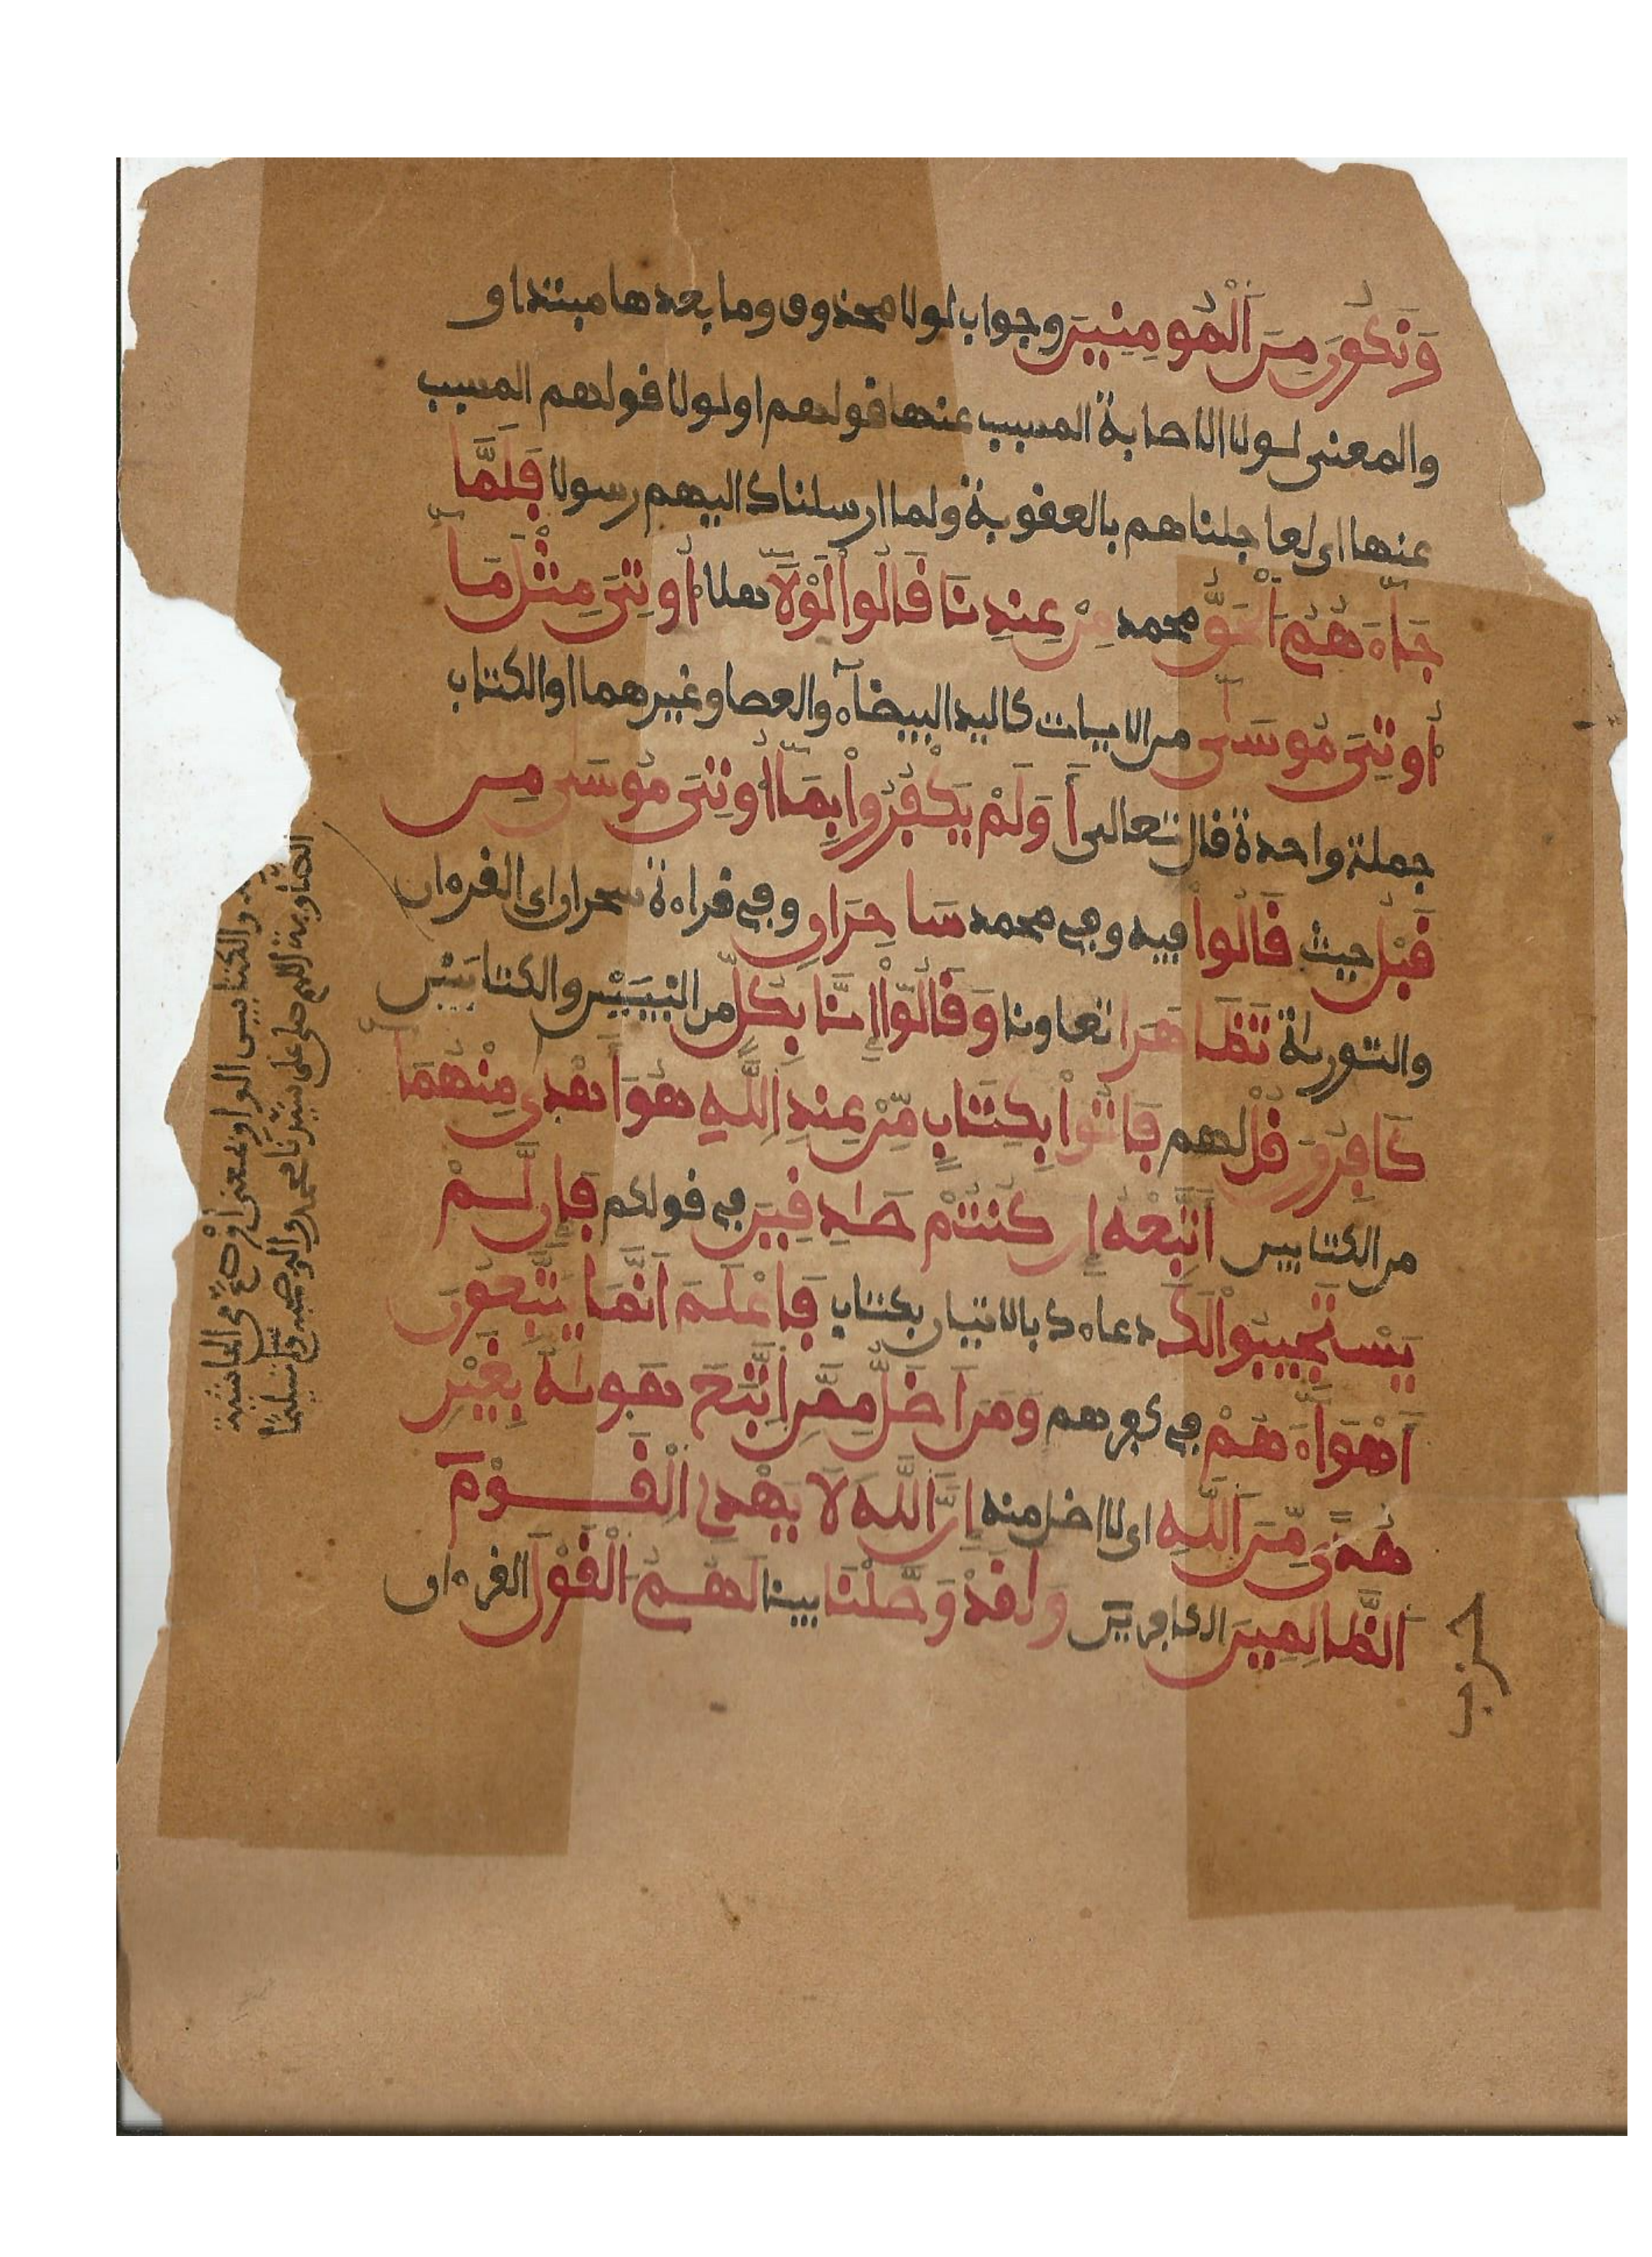 وَنَكُونَ مِنَ اَلْمُومِنِينَ وجواب لولا محذوف وما بعدها مبتدا و
والمعنى لولا الاصابة المسبب عنها قولهم او لولا قولهم المسبب
عنها اى لعاجلناهم بالعقوبة ولما ارسلناك اليهم رسولا فَلَمَّا
جَآءَهُمُ اُلْحَقُّ محمد مِنْ عِندِنَا قَالُواْ لَوْلَآ هلا أُوتِىَ مِثْلَ مَآ
أُوتِىَ مُوسَىٰٓ من الايات كاليد البيضآء والعصا وغيرهما او الكتاب
جملة واحدة قال تعالى أَوَلَمْ يَكْفُرُواْ بِمَآ أُوتِىَ مُوسَىٰ مِن
قَبْلُ حيث قَالُواْ فيه وفي محمد سَاحِرَانِ وفي قراءة سحران اى القرءان
والتورىة تَظَاهَرَا تعاونا وَقَالُوٓاْ إِنَّا بِكُلٍّ من النبيـَيْن والكتابَيْن
كَافِرُونَ قُلْ لهم فَاتُواْ بِكِتَابٍ مِّنْ عِندِ اِللَّهِ هُوَ أَهْدَىٰ مِنْهُمَآ
من الكتابين أَتَّبِعْهُ إِن كُنتُمْ صَادِقِينَ في قولكم فَإِن لَّمْ
يَسْتَجِيبُواْ لَكَ دعاءك بالاتيان بكتاب فَاعْلَمَ اَنَّمَا يَتَّبِعُونَ
أَهْوَآءَهُمْ في كفرهم وَمَنَ اَضَلُّ مِمَّنِ اِتَّبَعَ هَوَىٰهُ بِغَيْرِ
هُدىً مِّنَ اَللَّهِ اى لا اضل منه إِنَّ اَللَّهَ لَا يَهْدِى اِلْقَوْمَ
اَلظَّالِمِينَ الكافرين وَلَقَدْ وَصَّلْنَا بينا لَهُمُ اُلْقَوْلَ القرءان
حزب
والكتابين الواو بمعنى او صح من الحاشية
الصاوية اللهم صل على سيدنا محمد واله وصحبه وسلم تسليما